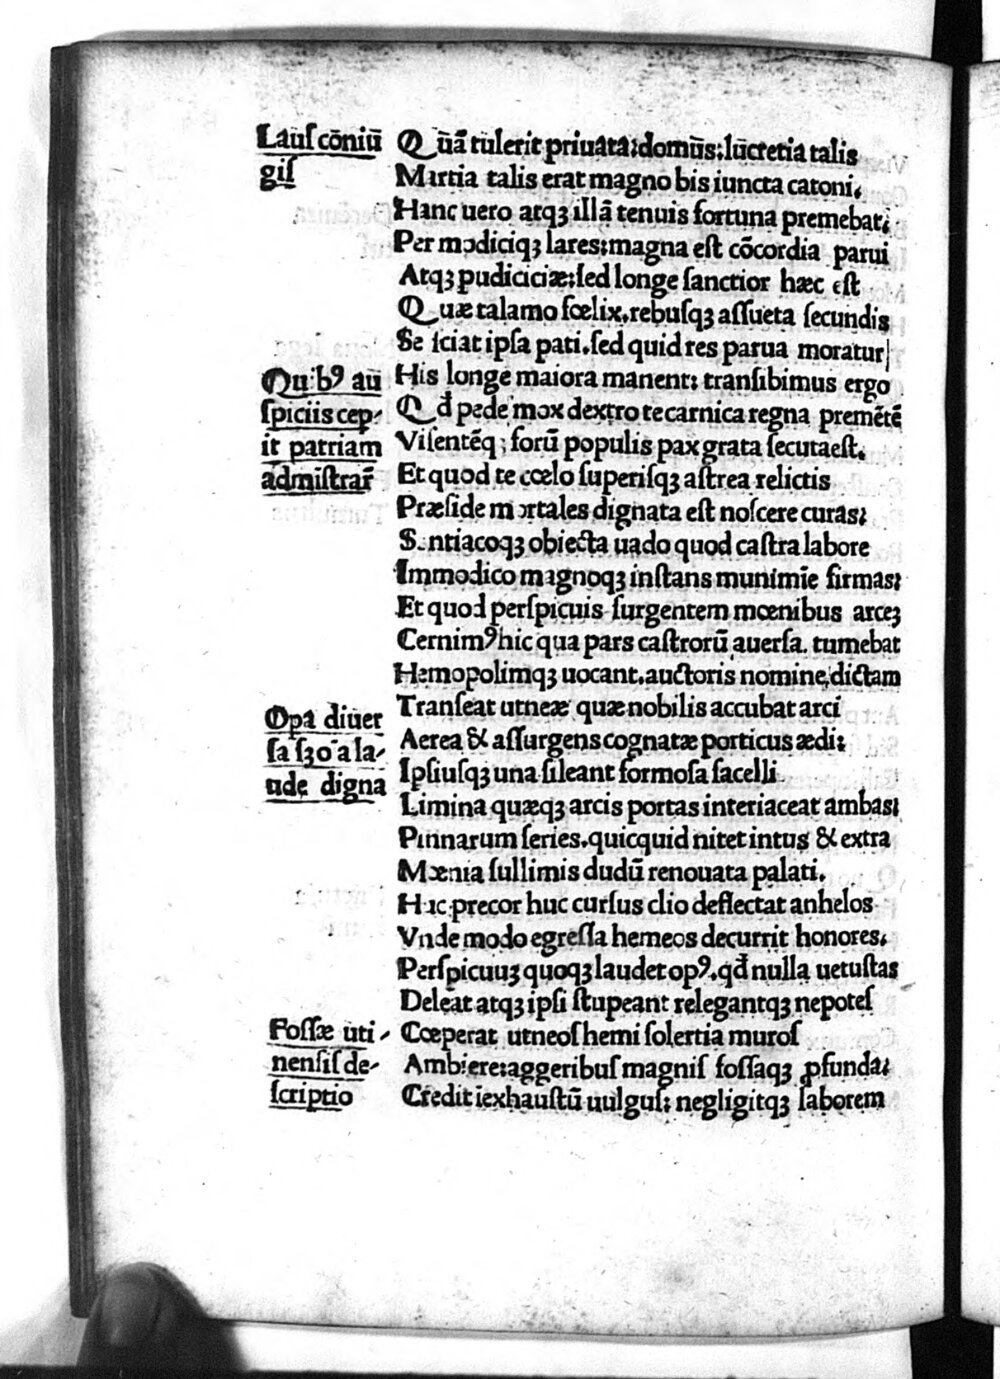 Lauſ cōniū
giſ
Qūā tulerit priuata: domūs: lucretia talis
Martia talis erat magno bis iuncta catoni.
Hanc uero atqꝫ illā tenuis fortuna premebat:
Per modiciqꝫ lares: magna eſt cōcordia parui
Atqꝫ pudiciciæ: ſed longe ſanctior hæc eſt
Quæ talamo fœlix. rebuſqꝫ aſſueta ſecundis
Se ſciat ipſa pati. ſed quid res parua moratur
Quibꝰ au
ſpiciis cep-
it patriam
admiſtrar̄
His longe maiora manent: tranſibimus ergo
Qđ pede mox dextro te carnica regna premētē
Viſentēqꝫ forū populis pax grata ſecuta eſt.
Et quod te cœlo ſuperiſqꝫ aſtrea relictis
Præſide mortales dignata eſt noſcere curas:
Sontiacoqꝫ obiecta uado quod caſtra labore
Immodico magnoqꝫ inſtans munimīe firmas:
Et quod perſpicuis ſurgentem mœnibus arceꝫ
Cernimꝰ hic qua pars caſtrorū auerſa. tumebat
Hemopolimqꝫ uocant. auctoris nomine dictam
Opa diuer
ſa ſꝫ oīa la-
ude digna
Tranſeat utneæ quæ nobilis accubat arci
Aerea & aſſurgens cognatæ porticus ædi:
Ipſiuſqꝫ una ſileant formoſa ſacelli
Limina quæqꝫ arcis portas interiaceat ambas:
Pinnarum ſeries. quicquid nitet intus & extra
Mœnia ſullimis dudū renouata palati.
Huc precor huc curſus clio deflectat anhelos
Vnde modo egreſſa hemeos decurrit honores.
Perſpicuuꝫ quoqꝫ laudet opꝰ. qđ nulla uetuſtas
Deleat atqꝫ ipſi ſtupeant relegantqꝫ nepoteſ
Foſſæ uti-
nenſiſ de-
ſcriptio
Cœperat utneoſ hemi ſolertia muroſ
Ambiere: aggeribuſ magniſ foſſaqꝫ ꝓfunda:
Credit iexhauſtū uulguſ: negligitqꝫ laborem